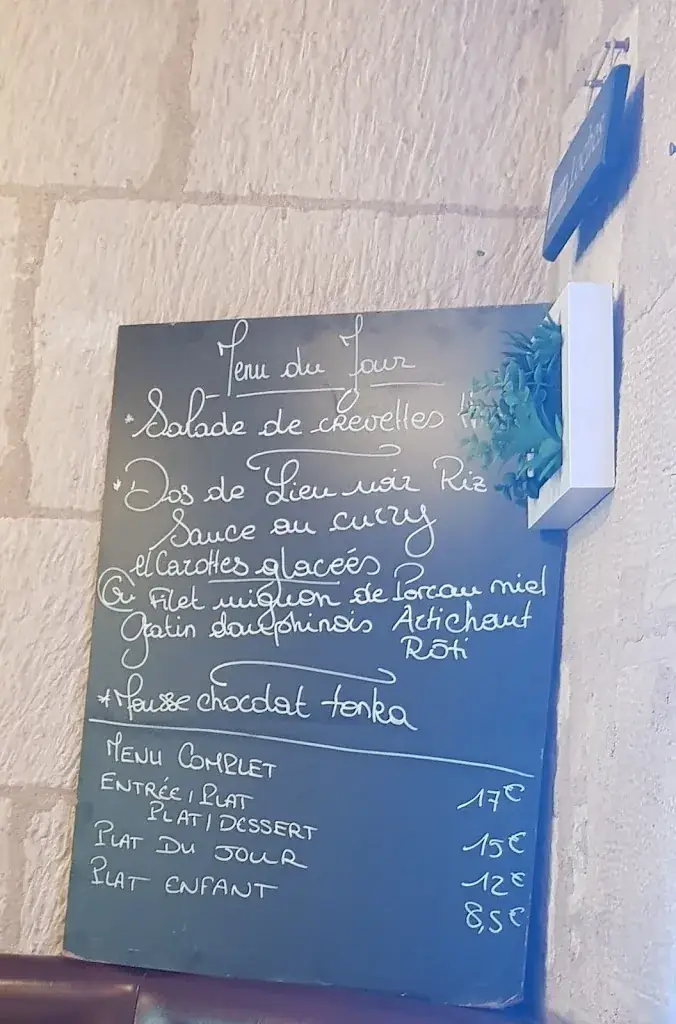 Menu du Jour
* Salade de crevettes
* Dos de Lieu noir Riz
Sauce au curry
et Carottes glaceés
Ou Filet mignon de Porc au miel
Gratin dauphinois Artichaut
Rôti
* Mousse chocolat tonka
MENU COMPLET 17€
ENTRÉE / PLAT
PLAT / DESSERT 15€
PLAT DU JOUR 12€
PLAT ENFANT 8,5€